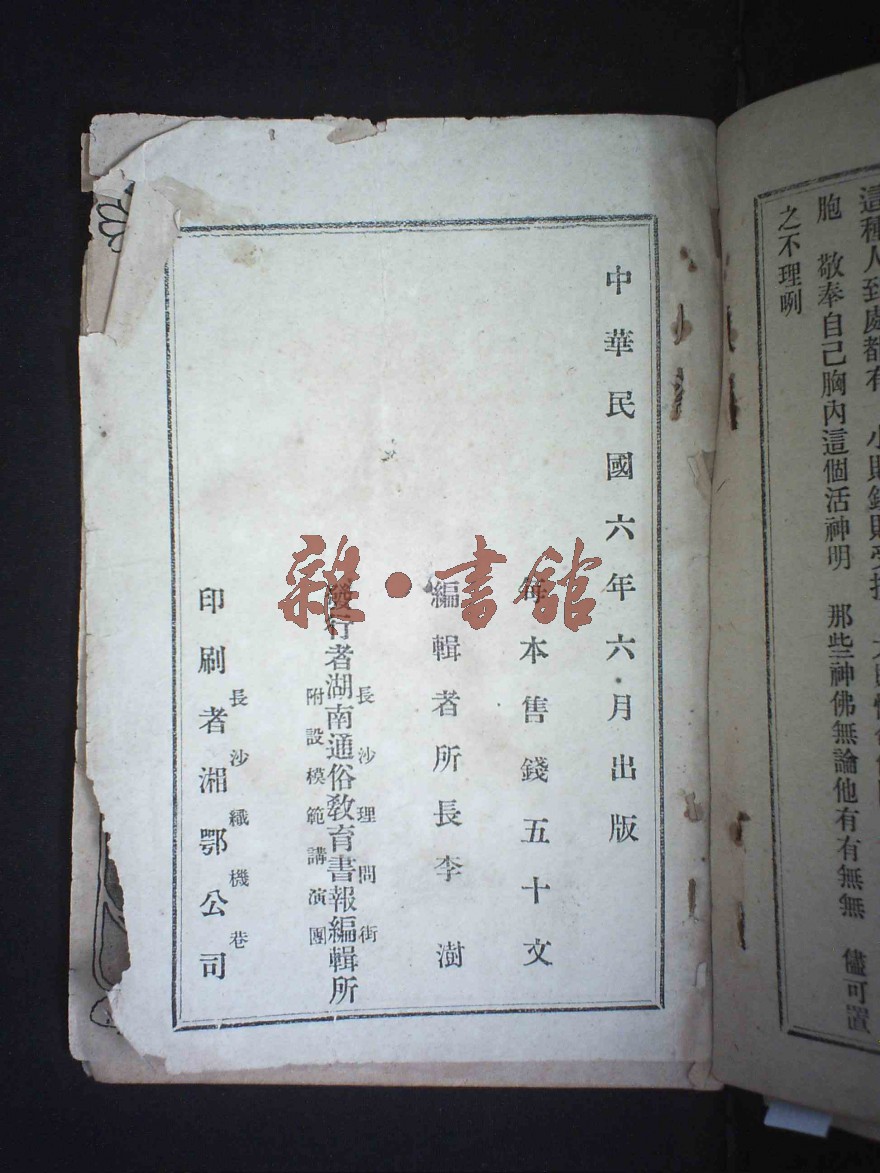 這種人到處都有
胞　敬奉自己胸內這個活神明　那些神佛無論他有有無無　儘可置
之不理咧
中華民國六年六月出版
每本售錢五十文
編輯者所長李澍
長沙理問街
發行者湖南通俗教育書報編輯所
附設模範講演團
長沙織機巷
印刷者湘鄂公司
雜·書館